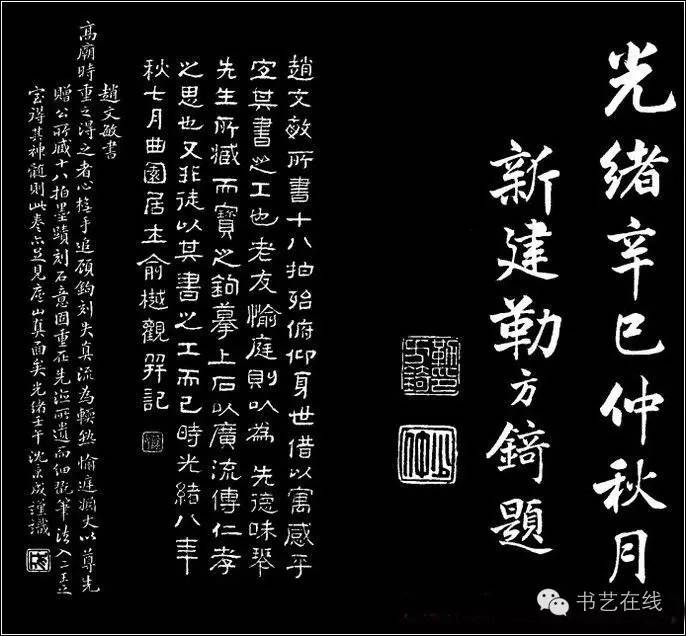 光緒辛巳仲秋月
新建勒方錡題
趙文敏所書十八拍殆俯仰身世借以寓感乎
其書之工也老友愉庭則以為先德味琴
先生所藏而寶之鉤摹上石以廣流傳仁孝
之思也又非徒以其書之工而已時光緒八年
秋七月曲園居士俞樾觀并記
趙文敏書
高廟時重之得之者心摹手追顧鉤刻失真流為輕熟愉庭觀夫以尊先
贈公所藏十八拍墨蹟刻石意固重在先澤所遺而細玩筆法入二王之
室得其神髓則此卷亦足見廬山真面矣光緒壬午沈秉成謹識
书艺在线